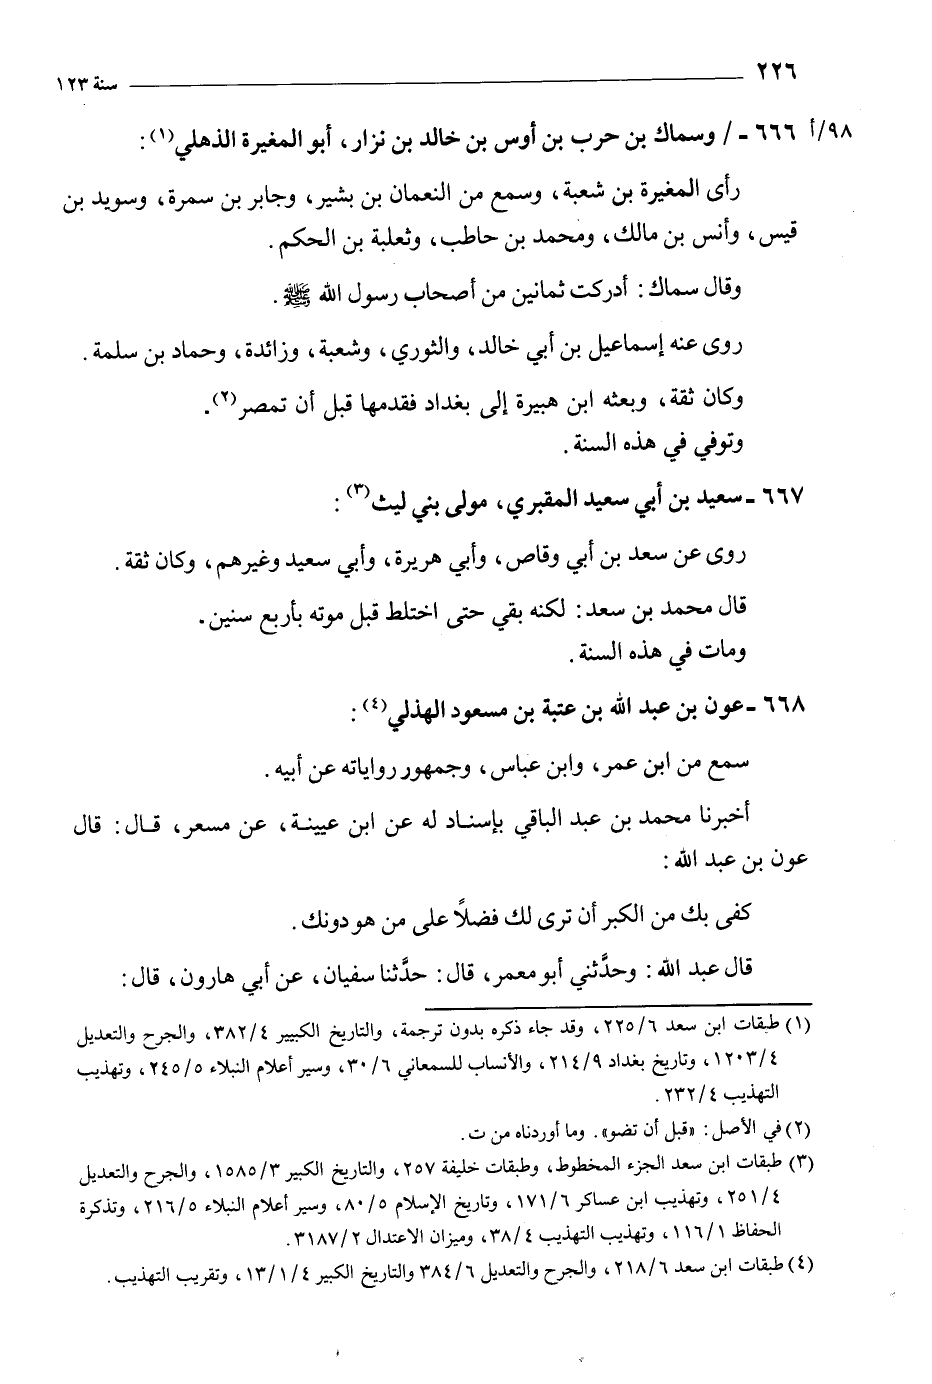 ٢٢٦ سنة ١٢٣
٩٨/أ ٦٦٦ - / وسماك بن حرب بن أوس بن خالد بن نزار، أبو المغيرة الذهلي(١) :
رأى المغيرة بن شعبة، وسمع من النعمان بن بشير، وجابر بن سمرة، وسويد بن
قيس، وأنس بن مالك، ومحمد بن حاطب، وثعلبة بن الحكم.
وقال سماك: أدركت ثمانين من أصحاب رسول الله ﷺ.
روى عنه إسماعيل بن أبي خالد، والثوري، وشعبة، وزائدة، وحماد بن سلمة.
وكان ثقة، وبعثه ابن هبيرة إلى بغداد فقدمها قبل أن تمصر(٢).
وتوفي في هذه السنة.
٦٦٧ - سعيد بن أبي سعيد المقبري، مولى بني ليث(٣) :
روى عن سعد بن أبي وقاص، وأبي هريرة، وأبي سعيد وغيرهم، وكان ثقة.
قال محمد بن سعد: لكنه بقي حتى اختلط قبل موته بأربع سنين.
ومات في هذه السنة.
٦٦٨ - عون بن عبد الله بن عتبة بن مسعود الهذلي(٤) :
سمع من ابن عمر، وابن عباس، وجمهور رواياته عن أبيه.
أخبرنا محمد بن عبد الباقي بإسناد له عن ابن عيينة، عن مسعر، قال: قال
عون بن عبد الله:
كفى بك من الكبر أن ترى لك فضلاً على من هو دونك.
قال عبد الله: وحدَّثني أبو معمر، قال: حدَّثنا سفيان، عن أبي هارون، قال:
(١) طبقات ابن سعد ٢٢٥/٦، وقد جاء ذكره بدون ترجمة، والتاريخ الكبيير ٣٨٢/٤، والجرح والتعديل
١٢٠٣/٤، وتاريخ بغداد ٢١٤/٩، والأنساب للسمعاني ٣٠/٦، وسير أعلام النبلاء ٢٤٥/٥، وتهذيب
التهذيب ٢٣٢/٤.
(٢) في الأصل: «قبل أن تضو». وما أوردناه من ت.
(٣) طبقات ابن سعد الجزء المخطوط، وطبقات خليفة ٢٥٧، والتاريخ الكبير ١٥٨٥/٣، والجرح والتعديل
٢٥١/٤، وتهذيب ابن عساكر ١٧١/٦، وتاريخ الإسلام ٨٠/٥، وسير أعلام النبلاء ٢١٦/٥، وتذكرة
الحفاظ ١١٦/١، وتهذيب التهذيب ٣٨/٤، وميزان الاعتدال ٣١٨٧/٢.
(٤) طبقات ابن سعد ٢١٨/٦، والجرح والتعديل ٣٨٤/٦ والتاريخ الكبير ١٣/١/٤، وتقريب التهذيب.